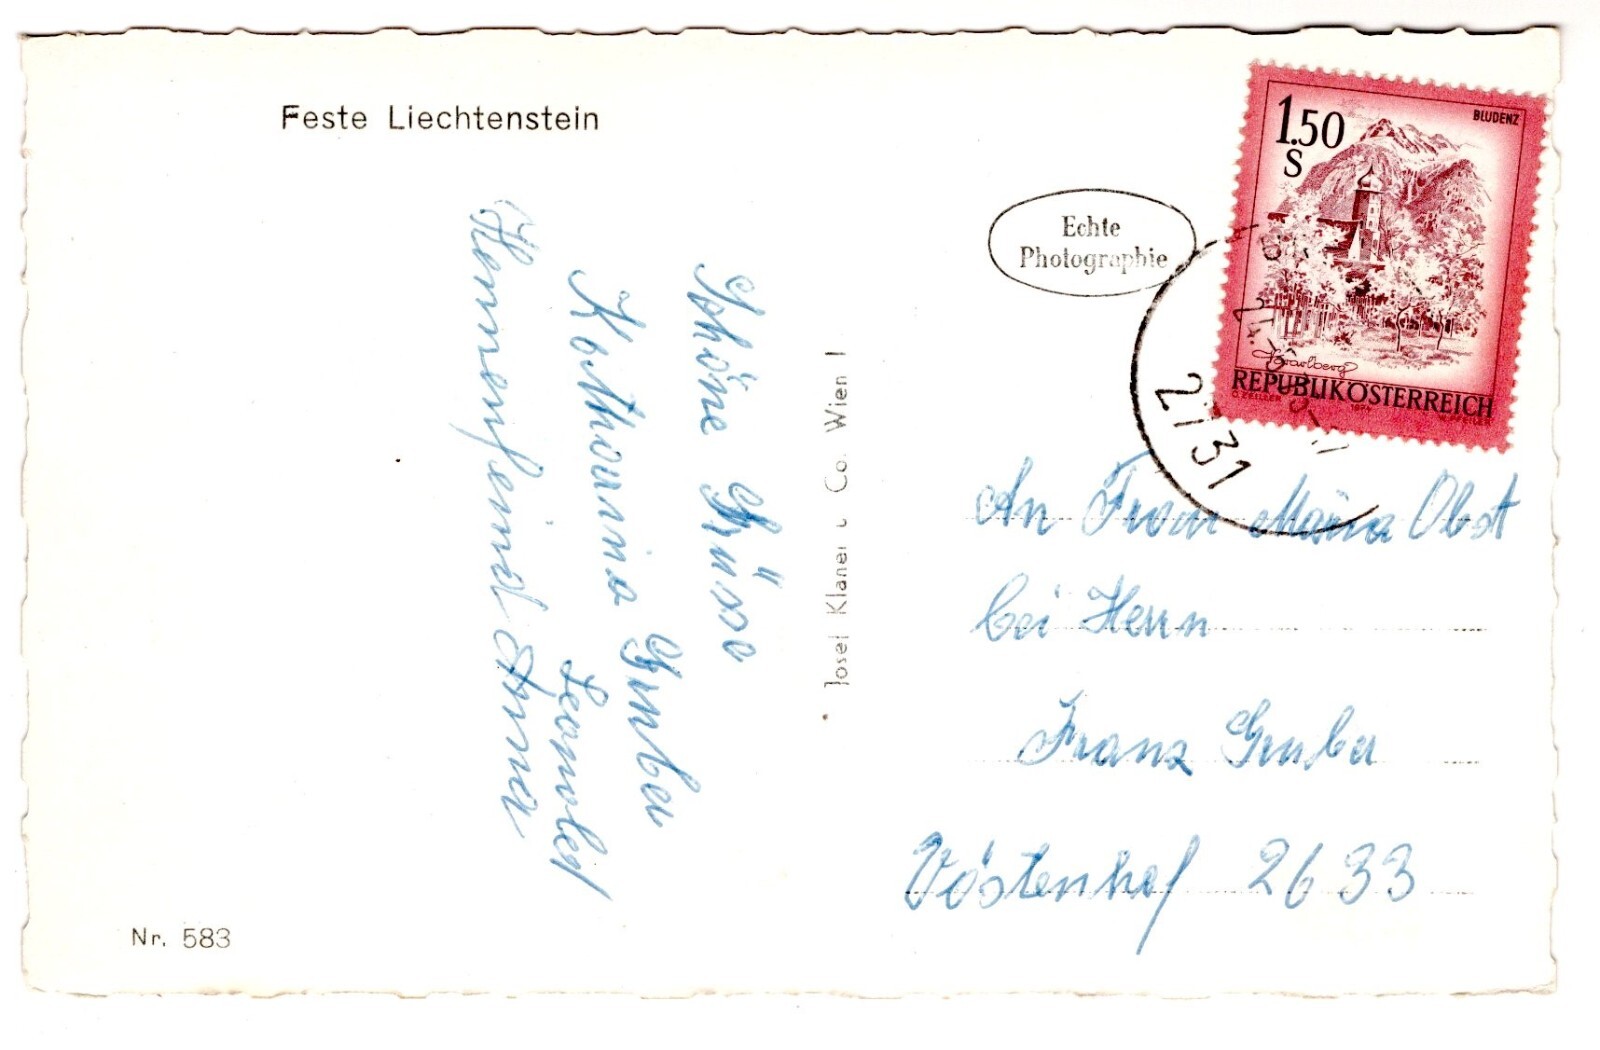 Feste Liechtenstein
Schöne Grüsse
Katharina Gruber
Leopold
Anna
Nr. 583
Josef Klaner u Co. Wien I
Echte
Photographie
1.50
S
BLUDENZ
Vorarlberg
REPUBLIK ÖSTERREICH
O. ZEILLER 1974 K. PFEILER
2731
An Frau Maria Obst
bei Herrn
Franz Gruber
Vöstenhof 2633